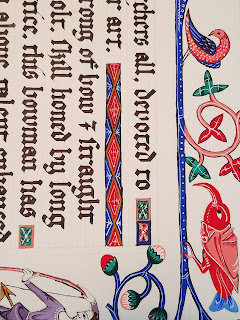 chers all, devoted to
r art.
rong of bow ⁊ straight
olt. Skill honed by long
tice, this bowman has
alone talent enhanced